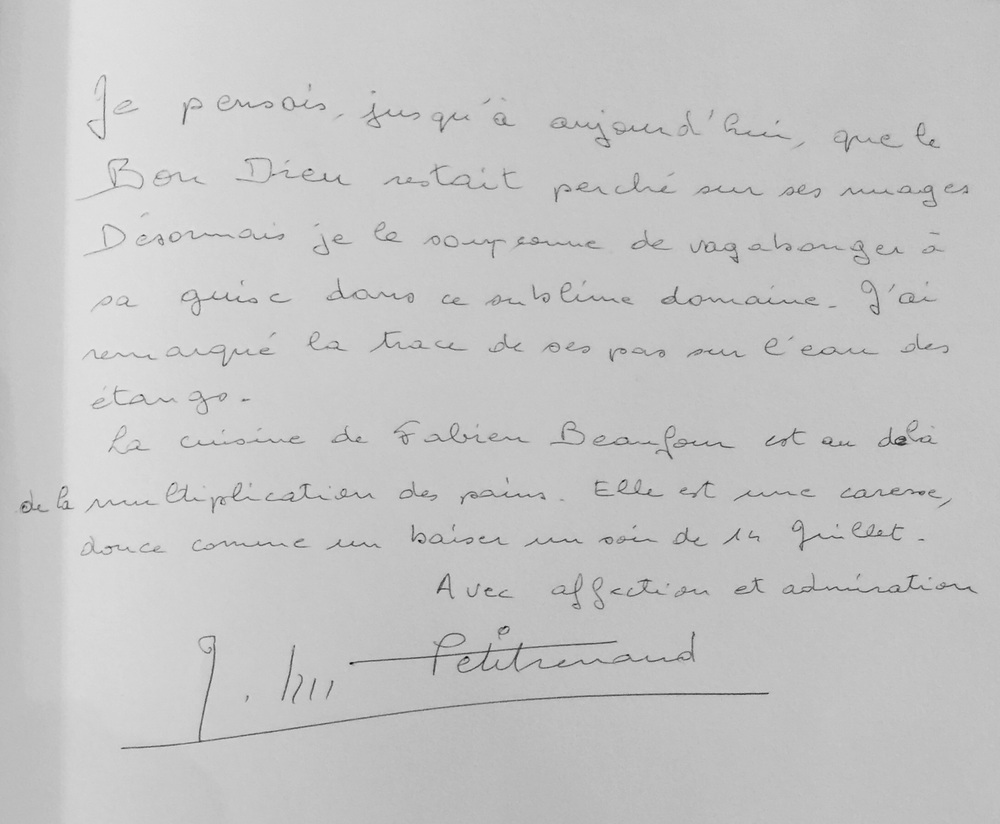 Je pensais, jusqu'à aujourd'hui, que le
Bon Dieu restait perché sur ses nuages
Désormais je le soupçonne de vagabonger à
sa guise dans ce sublime domaine. J'ai
remarqué la trace de ses pas sur l'eau des
étangs.
La cuisine de Fabien Beaufour est au delà
de la multiplication des pains. Elle est une caresse,
douce comme un baiser un soir de 14 Juillet.
Avec affection et admiration
Petitrenaud